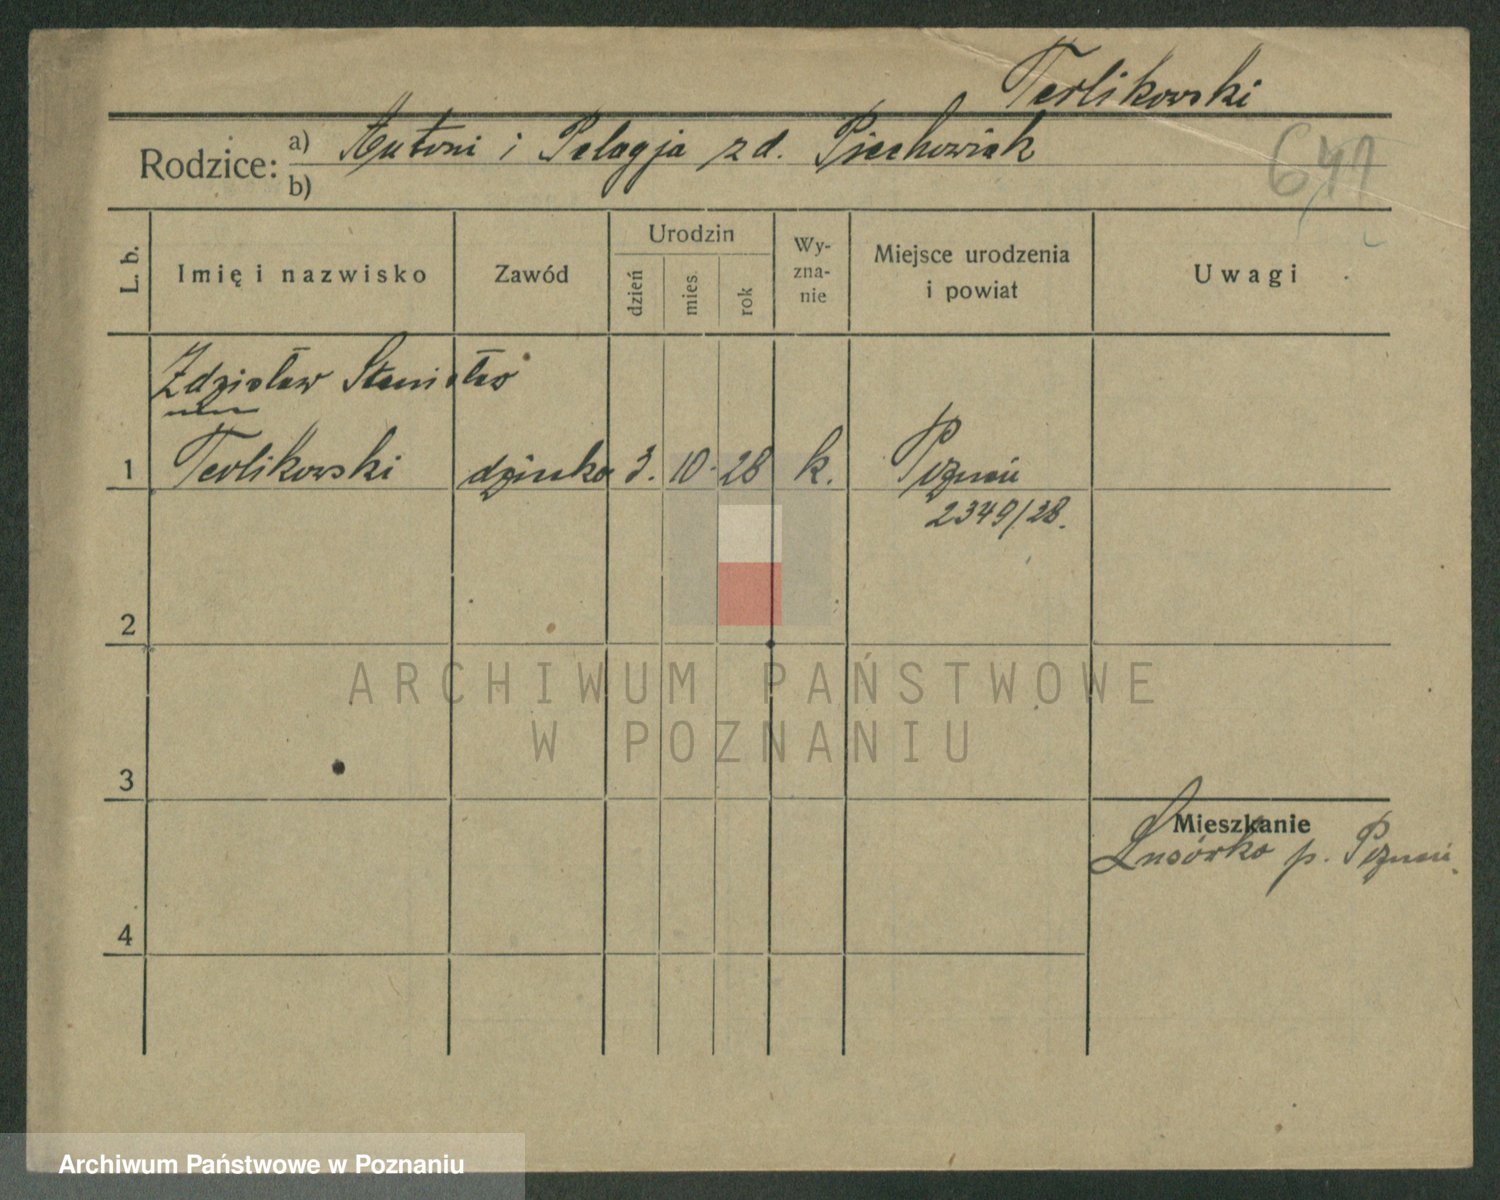 Terlikowski
Rodzice: a) Antoni i Pelagja zd. Piechowiak
b)
L. b.
Imię i nazwisko
Zawód
Urodzin
dzień
mies.
rok
Wy-
zna-
nie
Miejsce urodzenia
i powiat
Uwagi
Zdzisław Stanisław
1 Terlikowski dziecko 3. 10. 28 k. Poznań
2349/28.
2
3
Mieszkanie
p. Poznań.
4
ARCHIWUM PAŃSTWOWE
W POZNANIU
Archiwum Państwowe w Poznaniu